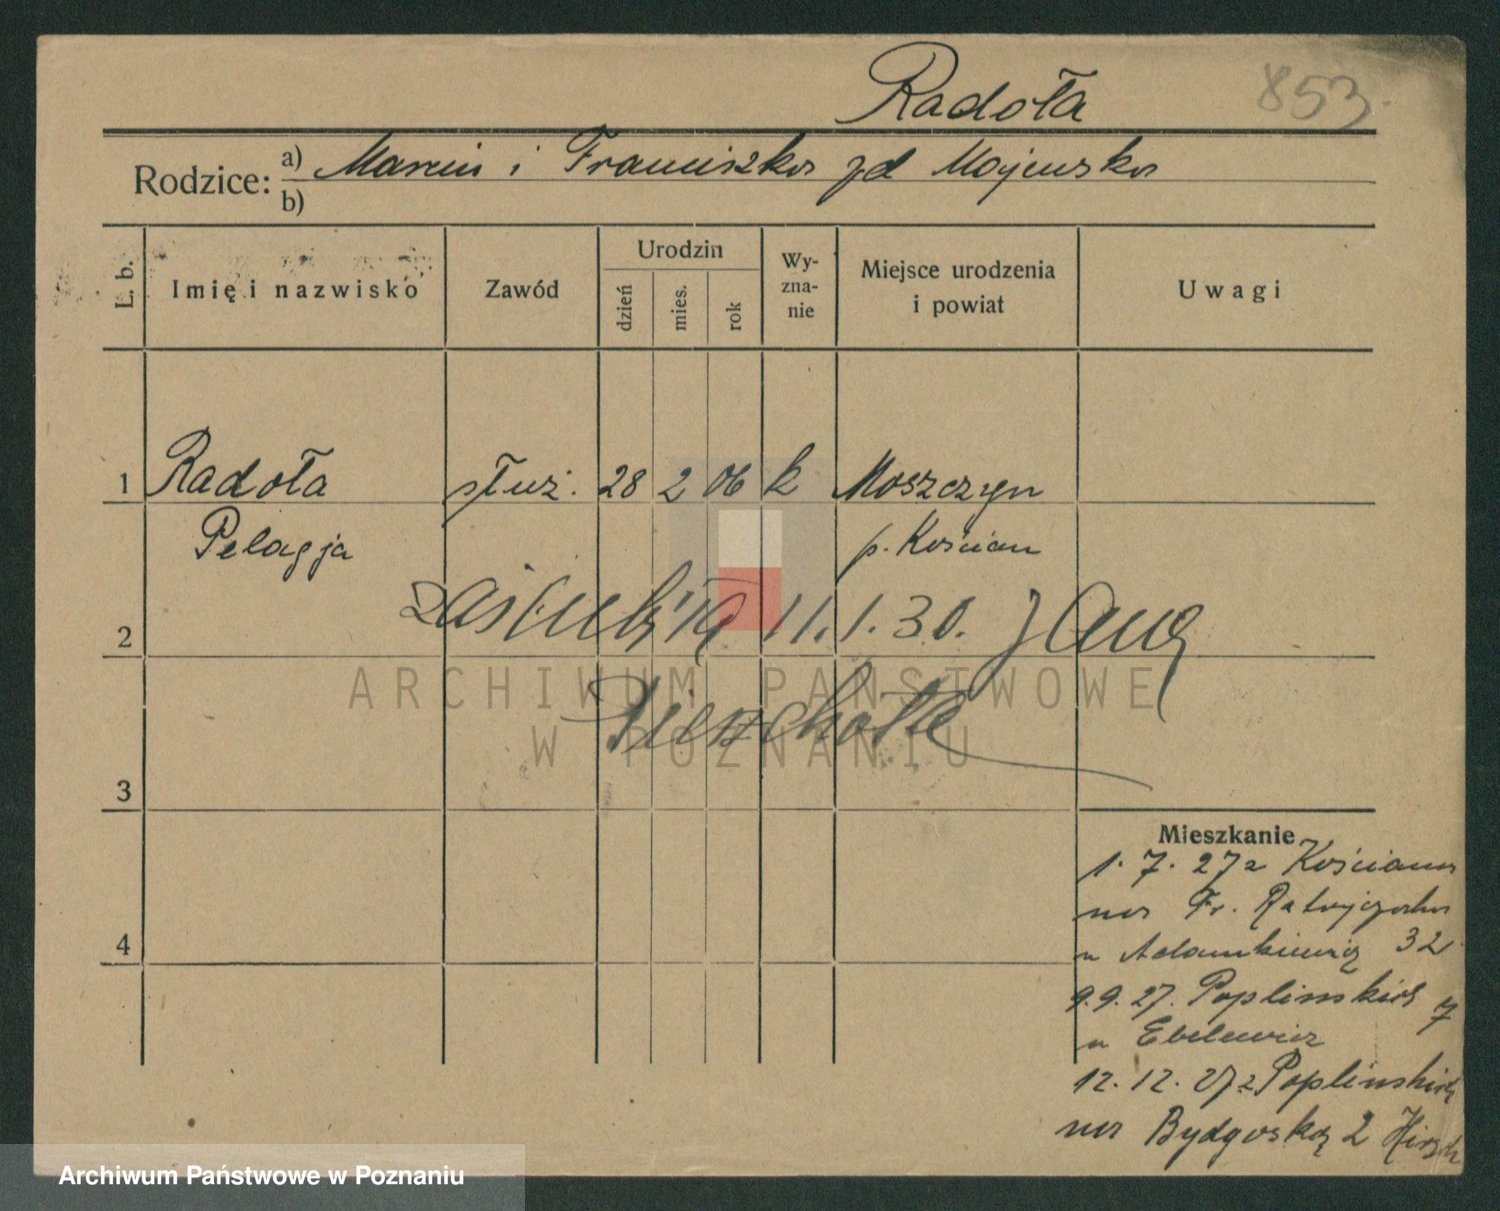 Radoła
853
Rodzice: a) Marcin i Franciszka zd Majewska
b)
L. b.
Imię i nazwisko
Zawód
Urodzin
dzień
mies.
rok
Wy-
zna-
nie
Miejsce urodzenia
i powiat
Uwagi
1 Radoła służ. 28 2 06 k Moszczyn
Pelagja p. Kościan
zaślub'ła 11.1.30. Jana
2
ARCHIWUM PAŃSTWOWE
W POZNANIU
3
Mieszkanie
1. 7. 27 z Kościana
na Fr. Ratajczaka
u Adamkiewicz 32
9.9. 27. Poplińskich 7
u Ebelewicz
4
12. 12. 27 z Poplińskich
na Bydgoską 2 Hirsch
Archiwum Państwowe w Poznaniu